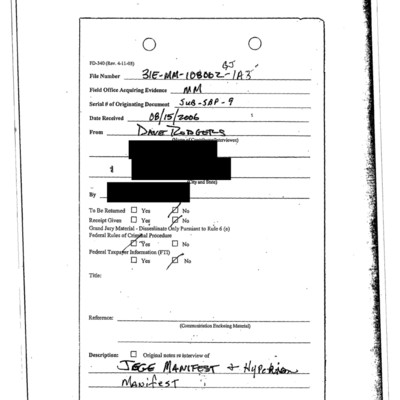 FD-340 (Rev. 4-11-03)
BJ
File Number 31E-MM-108002-1A3
Field Office Acquiring Evidence MM
Serial # of Originating Document SUB-SBP-9
Date Received 08/15/2006
From DAVE RODGERS
(Name of Contributor/Interviewee)
(City and State)
By
To Be Returned ☐ Yes ☑ No
Receipt Given ☐ Yes ☑ No
Grand Jury Material - Disseminate Only Pursuant to Rule 6 (e)
Federal Rules of Criminal Procedure
☑ Yes ☐ No
Federal Taxpayer Information (FTI)
☐ Yes ☑ No
Title:
Reference:
(Communication Enclosing Material)
Description: ☐ Original notes re interview of
JEGE MANIFEST + Hyperion
Manifest